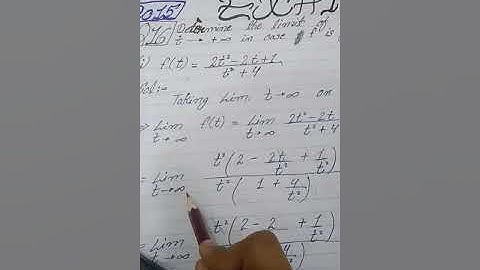 2015
Q16) Determine the limit of
t → +∞ in case f is
f(t) = 2t² - 2t + 1 / t² + 4
Sol:-
Taking Lim t→∞ on
⇒ Lim t→∞ f(t) = Lim t→∞ 2t² - 2t / t² + 4
= Lim t→∞ t²(2 - 2t/t² + 1/t²) / t²(1 + 4/t²)
= Lim t→∞ t²(2 - 2 + 1/t²) / 4/t²)